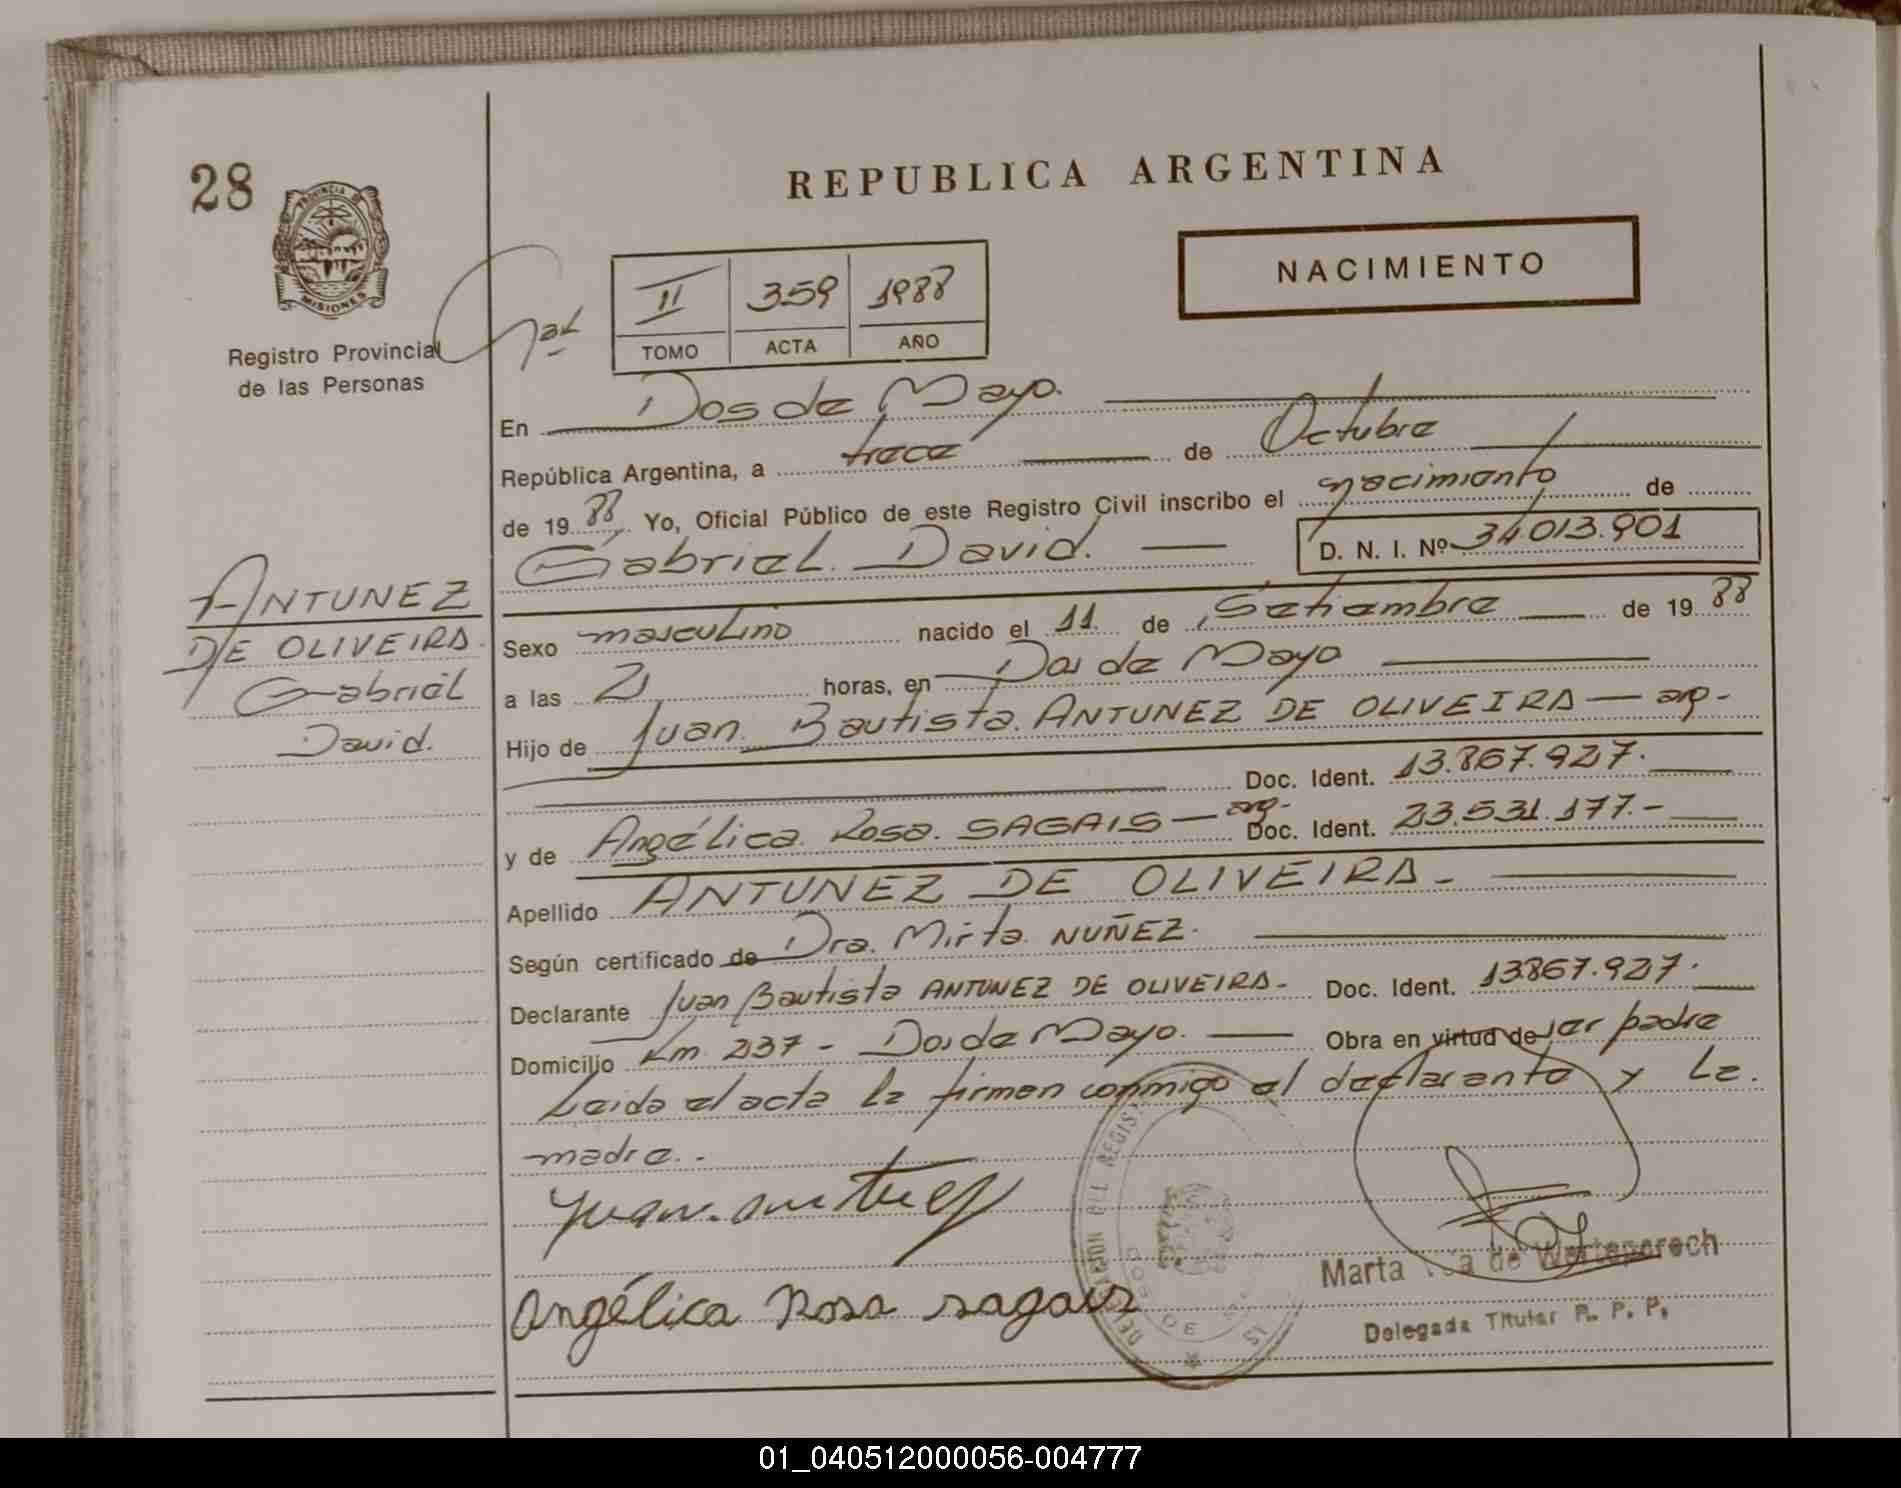 28
PROVINCIA DE
MISIONES
Registro Provincial
de las Personas
REPUBLICA ARGENTINA
NACIMIENTO
II 359 1988
TOMO ACTA AÑO
En Dos de Mayo.
República Argentina, a trece de Octubre
de 1988 Yo, Oficial Público de este Registro Civil inscribo el nacimiento de
Gabriel David. D. N. I. Nº 34.013.901
ANTUNEZ
DE OLIVEIRA
Gabriel
David.
Sexo masculino nacido el 11 de Setiembre de 1988
a las 21 horas, en Dos de Mayo
Hijo de Juan Bautista ANTUNEZ DE OLIVEIRA - arg-
Doc. Ident. 13.867.927.
y de Angélica Rosa SAGAIS - arg- Doc. Ident. 23.531.177.-
Apellido ANTUNEZ DE OLIVEIRA -
Según certificado de Dra. Mirta NUÑEZ.
Declarante Juan Bautista ANTUNEZ DE OLIVEIRA - Doc. Ident. 13867.927.
Domicilio Km. 237 - Dos de Mayo. Obra en virtud de ser padre
Leida el acta la firman conmigo el declarante y la
madre.-
Angélica Rosa sagais
Marta de
Delegada Titular R. P. P.
01_040512000056-004777